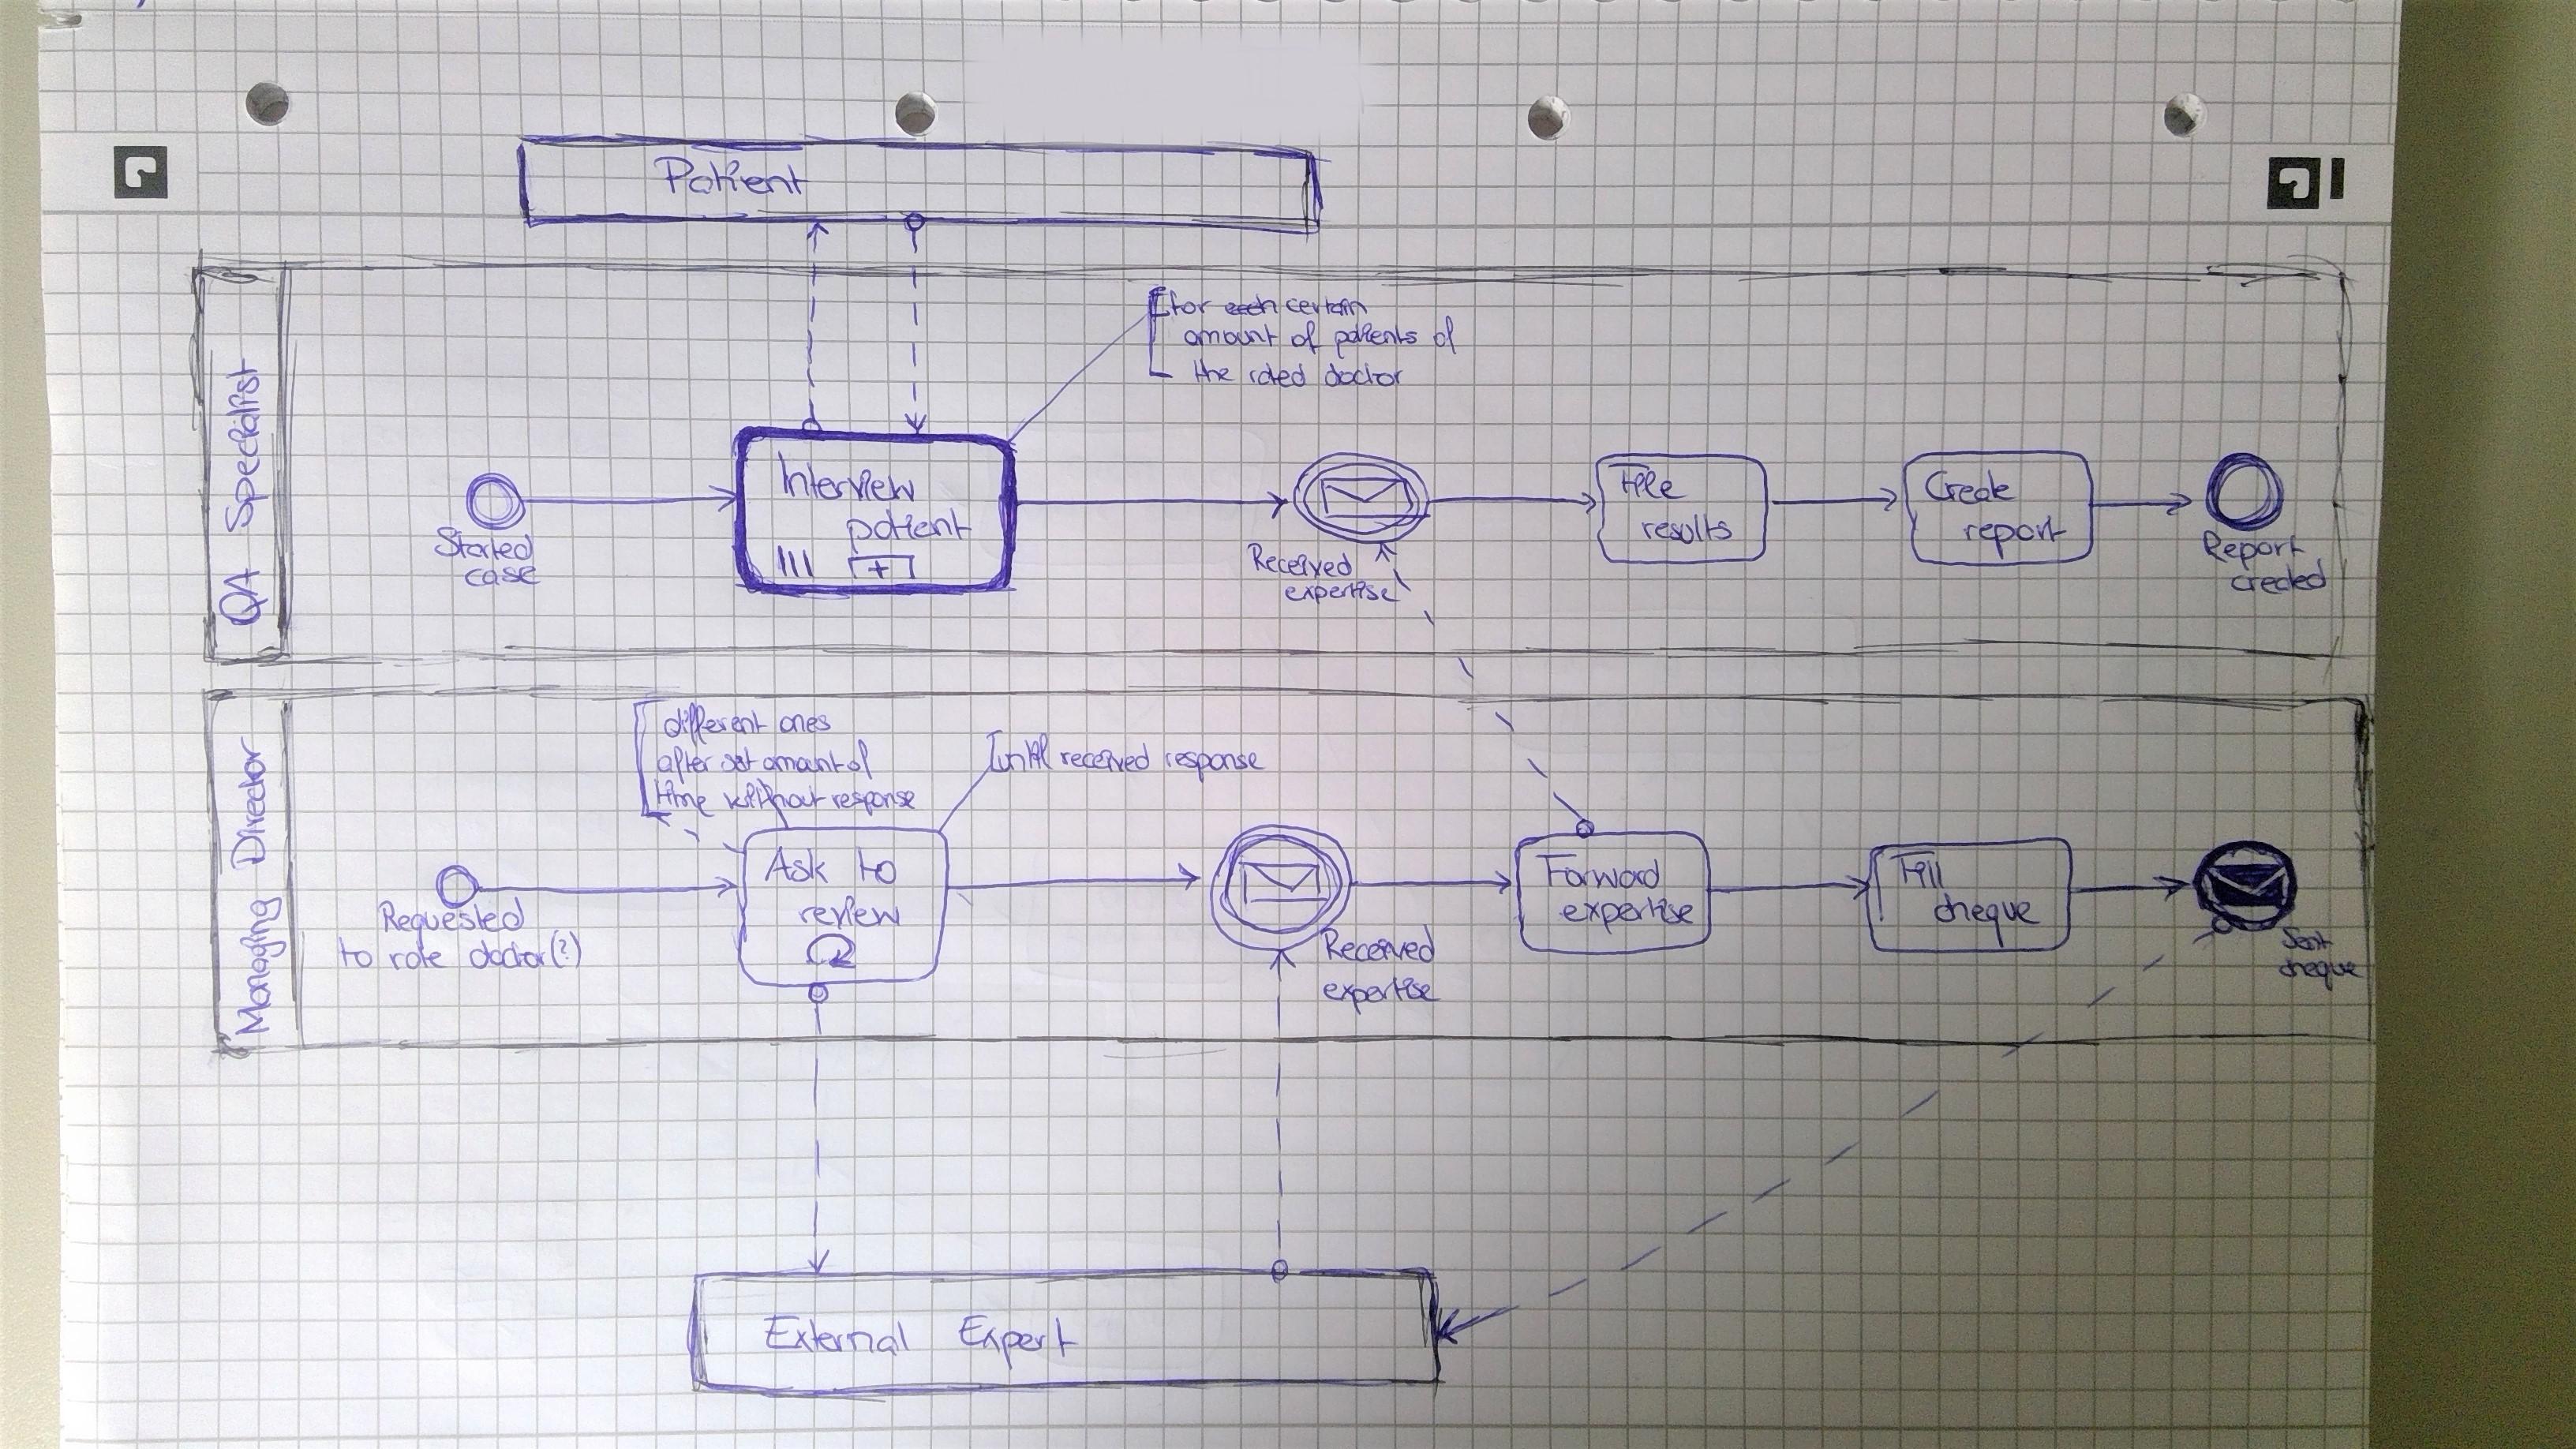 Patient
QA Specialist
for each certain
amount of patients of
the rated doctor
Started
case
Interview
patient
Received
expertise
File
results
Create
report
Report
created
Managing Director
different ones
after set amount of
time without response
Until received response
Requested
to rate doctor(?)
Ask to
review
Received
expertise
Forward
expertise
Fill
cheque
Sent
cheque
External Expert